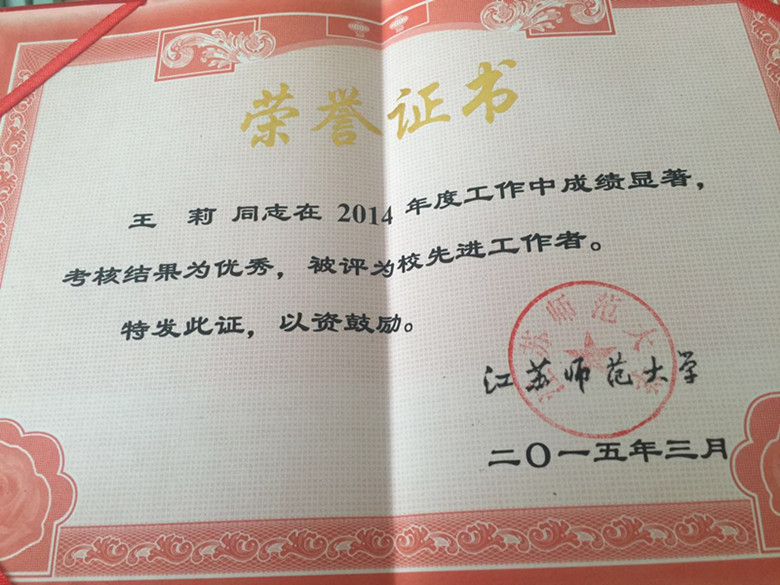 荣誉证书
王 莉 同志在 2014 年度工作中成绩显著，
考核结果为优秀，被评为校先进工作者。
特发此证，以资鼓励。
江苏师范大学
江苏师范大学
二〇一五年三月